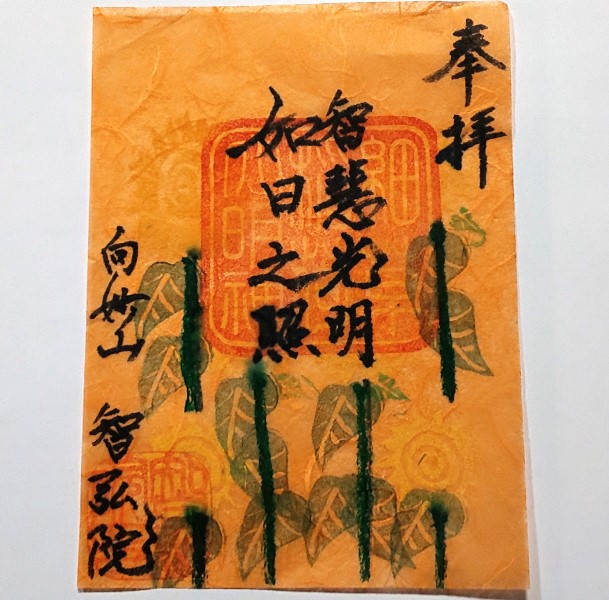 奉拝
智慧光明
如日之照
向峯山
智弘院